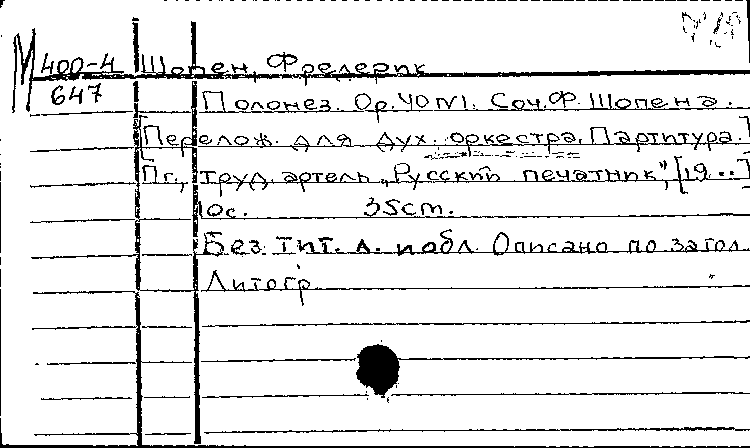 М 400-4 Шопен, Фредерик
647 Полонез. Op. 40 №1. Соч. Ф. Шопена.
[Перелож. для дух. оркестра. Партитура.]
Пг., труд. артель „Русский печатник“, [19..]
10с. 35см.
Без тит. л. и обл. Описано по загол.
Литогр.